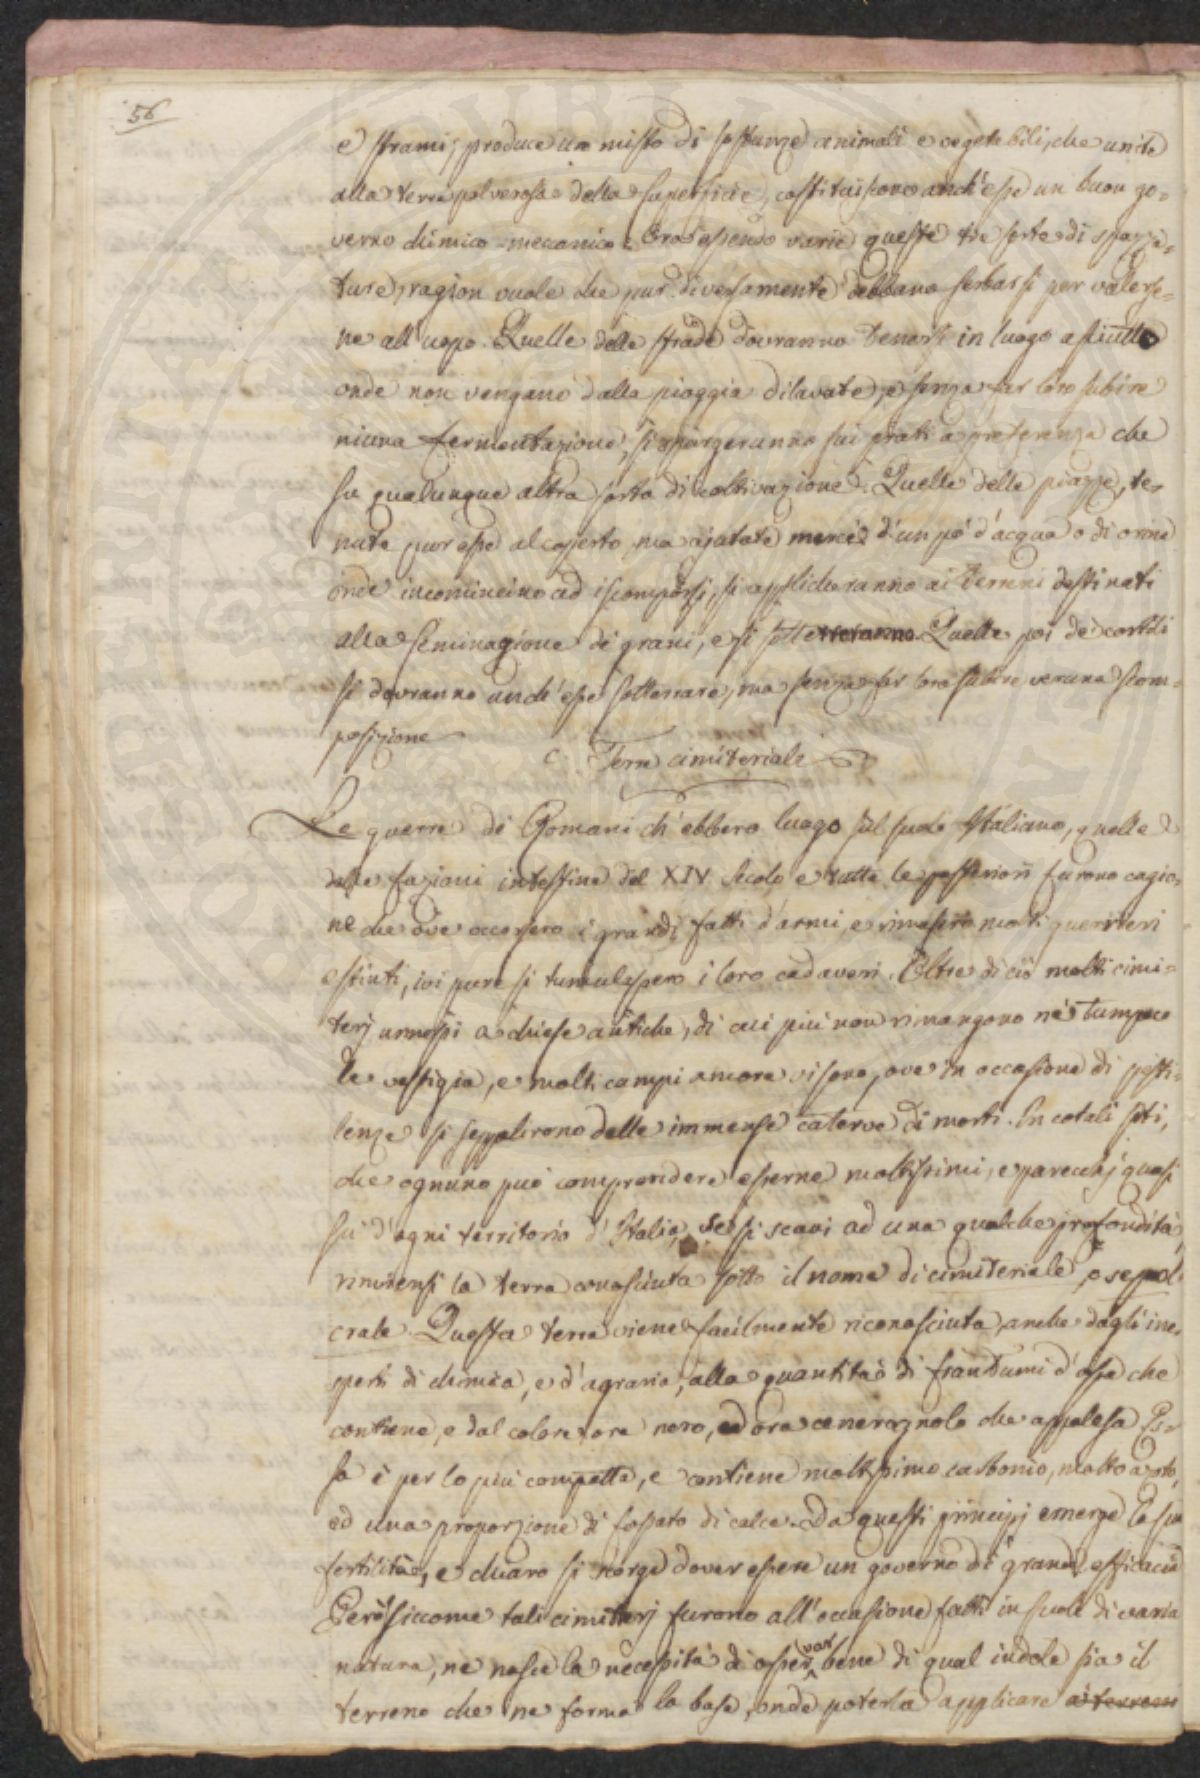 56
e strami, produce un misto di sostanze animali e vegetabili, che unite
alla terra polverosa della superficie, costituiscono anch'esse un buon go=
verno chimico-mecanico. Ora essendo varie queste tre sorte di spazza=
ture, ragion vuole che pur diversamente debbano serbarsi per valerse=
ne all'uopo. Quelle delle strade dovranno tenersi in luogo asciutto
onde non vengano dalla pioggia dilavate, e senza far loro subire
niuna fermentazione, si spargeranno sui prati a preferenza che
su qualunque altra sorta di coltivazione. Quelle delle piazze, te=
nute pur esse al coperto, ma ajutate mercè d'un pò d'acqua o di orine
onde incomincino ad iscomporsi, si applicheranno ai terreni destinati
alla seminagione di grani, e si sotterreranno. Quelle poi de' cortili
si dovranno anch'esse sotterrare, ma senza far loro subire veruna scom=
posizione
C. Terra cimiteriale
Le guerre de' Romani ch'ebbero luogo sul suolo Italiano, quelle
delle fazioni intestine del XIV secolo e tutte le posteriori furono cagio=
ne che ove occorsero i grandi fatti d'armi, e rimasero molti guerrieri
estinti, ivi pure si tumulassero i loro cadaveri. Oltre di ciò molti cimi=
terj annessi a chiese antiche, di cui più non rimangono nè tampoco
le vestigia, e molti campi ancora vi sono, ove in occasione di pesti=
lenze si seppelirono delle immense caterve di morti. In cotali siti,
che ognuno può comprendere esserne moltissimi, e parecchj quasi
su d'ogni territorio d'Italia, se si scavi ad una qualche profondità,
rinviensi la terra conosciuta sotto il nome di cimiteriale, o sepol=
crale. Questa terra viene facilmente riconosciuta, anche dagli ine=
sperti di chimica, e d'agraria, alla quantità di frantumi d'ossa che
contiene, e dal colore ora nero, ed ora cenerognolo che appalesa. Es=
sa è per lo più compatta, e contiene moltissimo carbonio, molto azoto,
ed una proporzione di fosfato di calce. Da questi principj emerge la sua
fertilità, e chiaro si scorge dover essere un governo di grande efficacia
Però siccome tali cimiterj furono all'occasione fatti in suole di varia
natura, ne nasce la necessità di osservar bene di qual indole sia il
terreno che ne forma la base, onde poterla applicare ai terreni